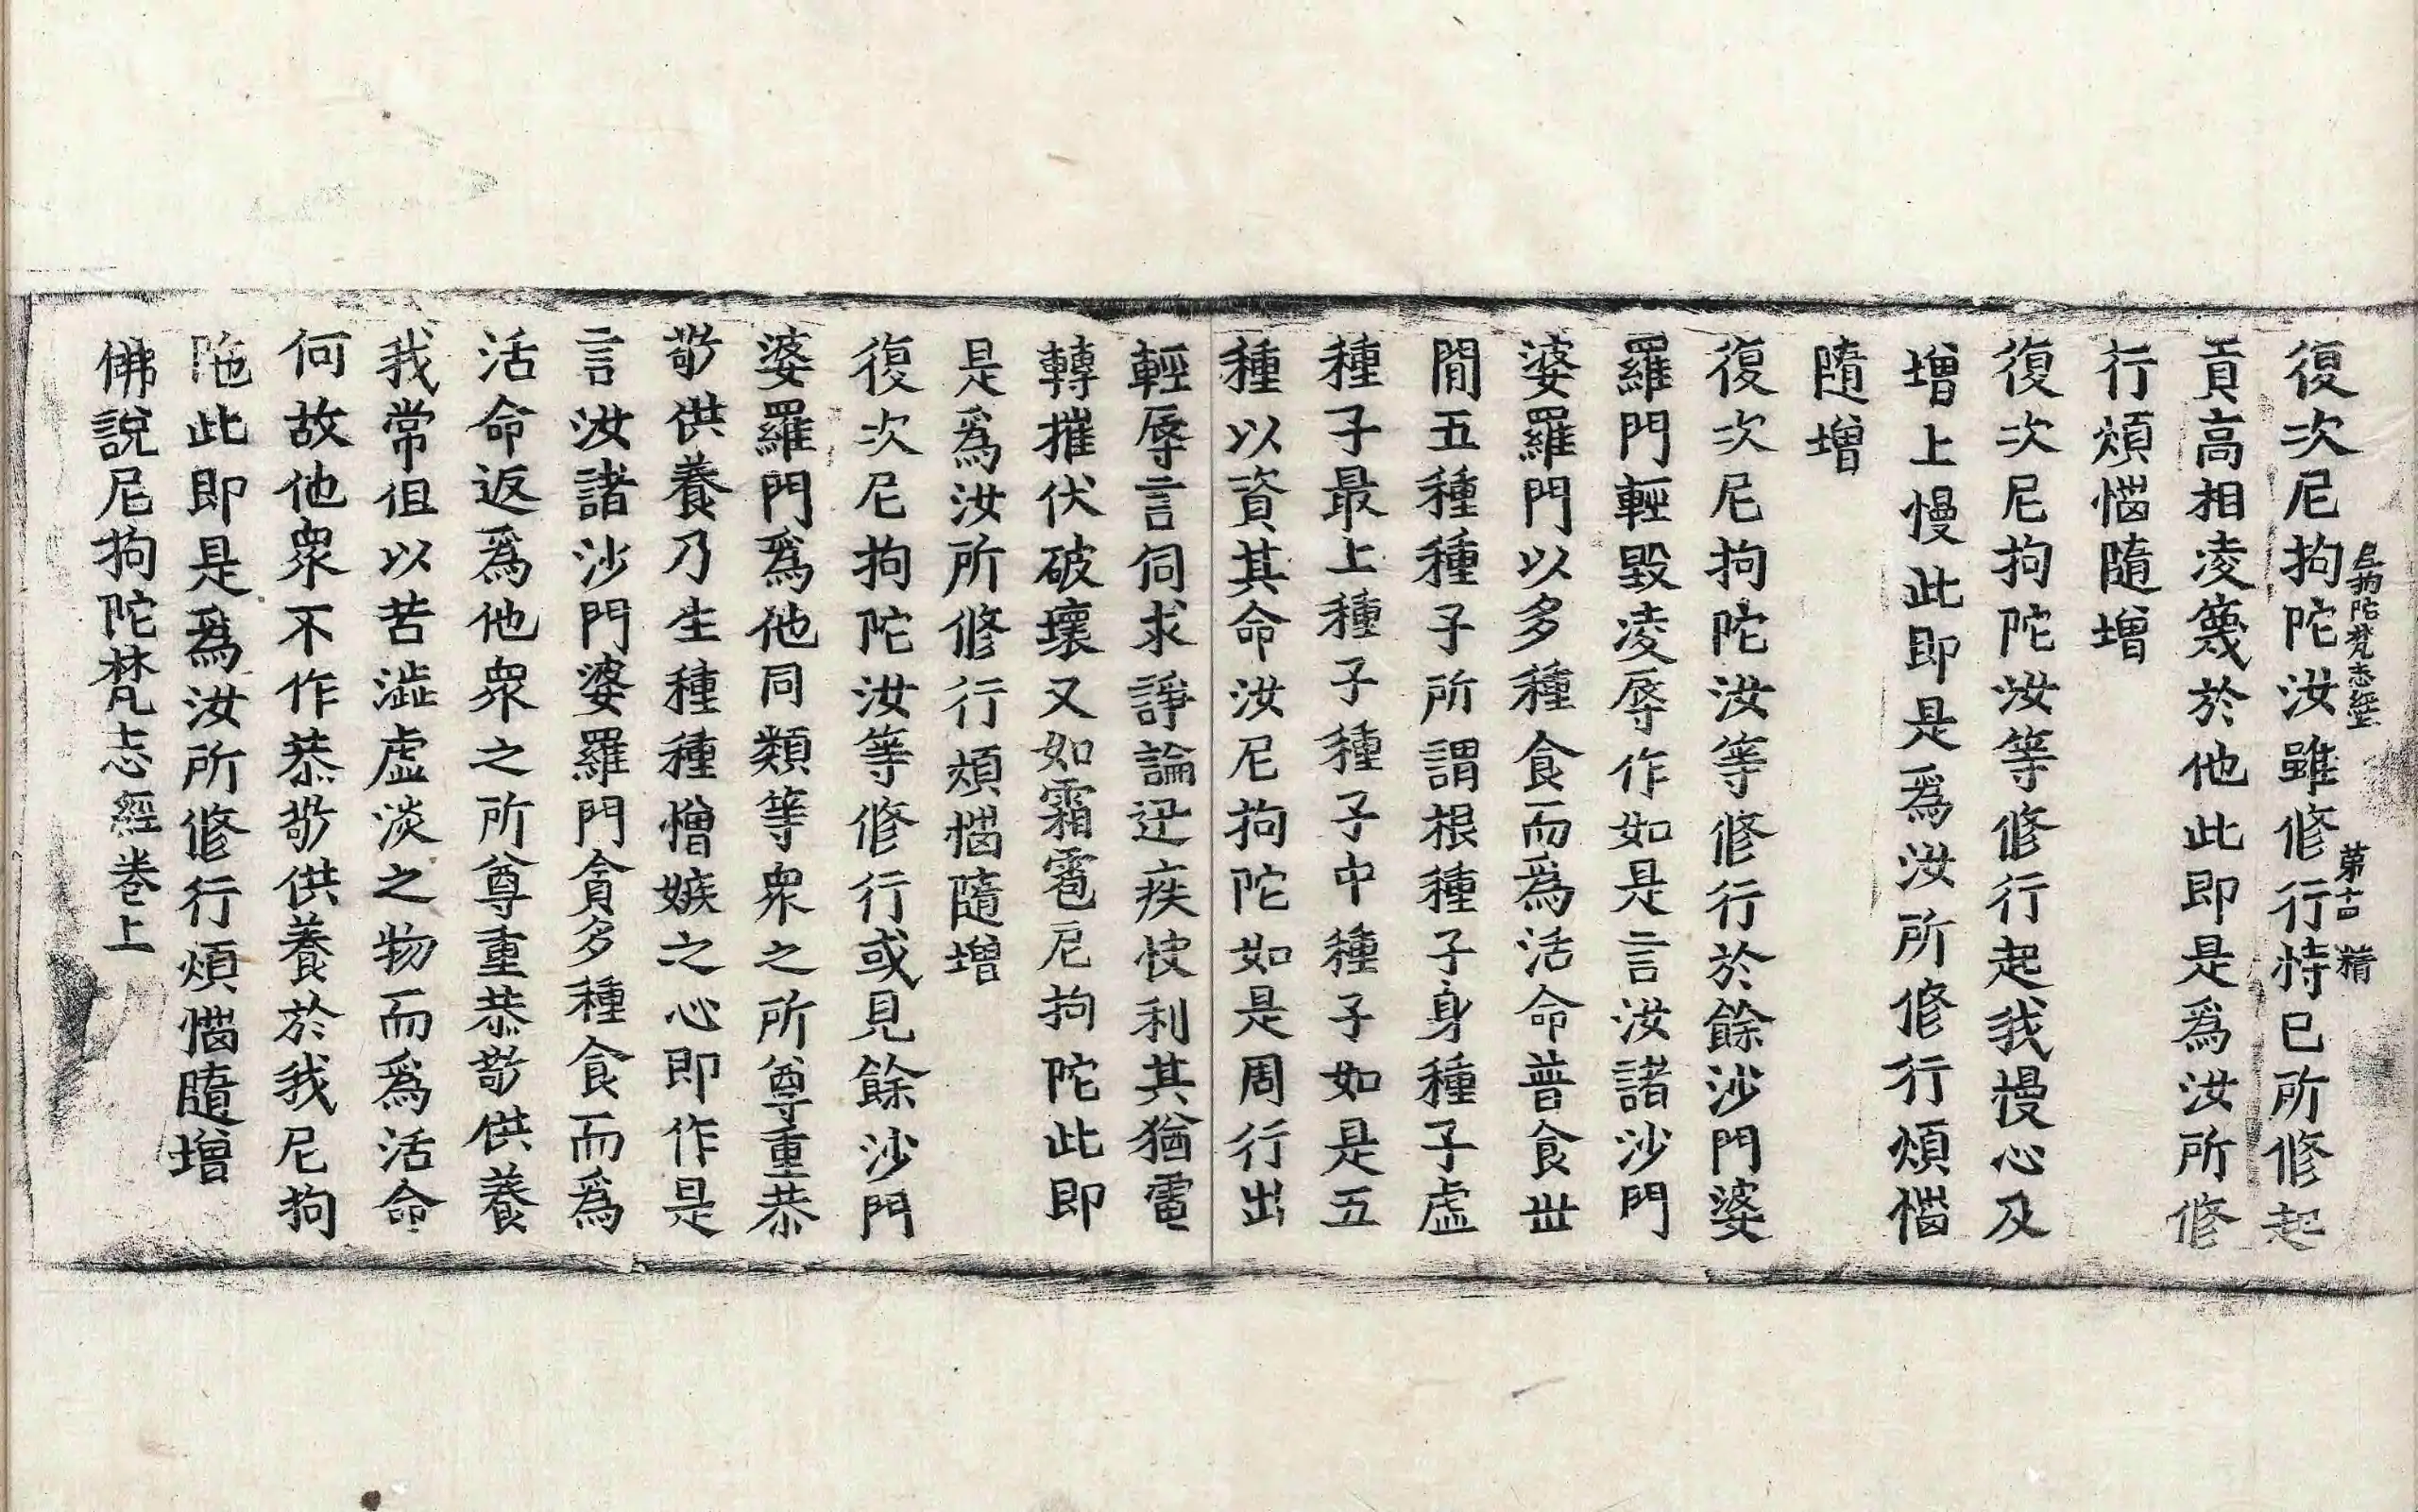 尼拘陀梵志經 第十古 精
復次尼拘陀汝雖修行恃已所修起
貢高相凌篾於他此即是爲汝所修
行煩惱隨增
復次尼拘陀汝等修行起我慢心及
增上慢此即是爲汝所修行煩惱
隨增
復次尼拘陀汝等修行於餘沙門婆
羅門輕毀凌辱作如是言汝諸沙門
婆羅門以多種食而爲活命普食世
閒五種種子所謂根種子身種子虛
種子最上種子種子中種子如是五
種以資其命汝尼拘陀如是周行出
輕辱言伺求諍論迅疾快利其猶電
轉摧伏破壞又如霜雹尼拘陀此即
是爲汝所修行煩惱隨增
復次尼拘陀汝等修行或見餘沙門
婆羅門爲他同類等衆之所尊重恭
敬供養乃生種種憎嫉之心即作是
言汝諸沙門婆羅門貪多種食而爲
活命返爲他衆之所尊重恭敬供養
我常但以苦澁虛淡之物而爲活命
何故他衆不作恭敬供養於我尼拘
陁此即是爲汝所修行煩惱隨增
佛說尼拘陀梵志經卷上